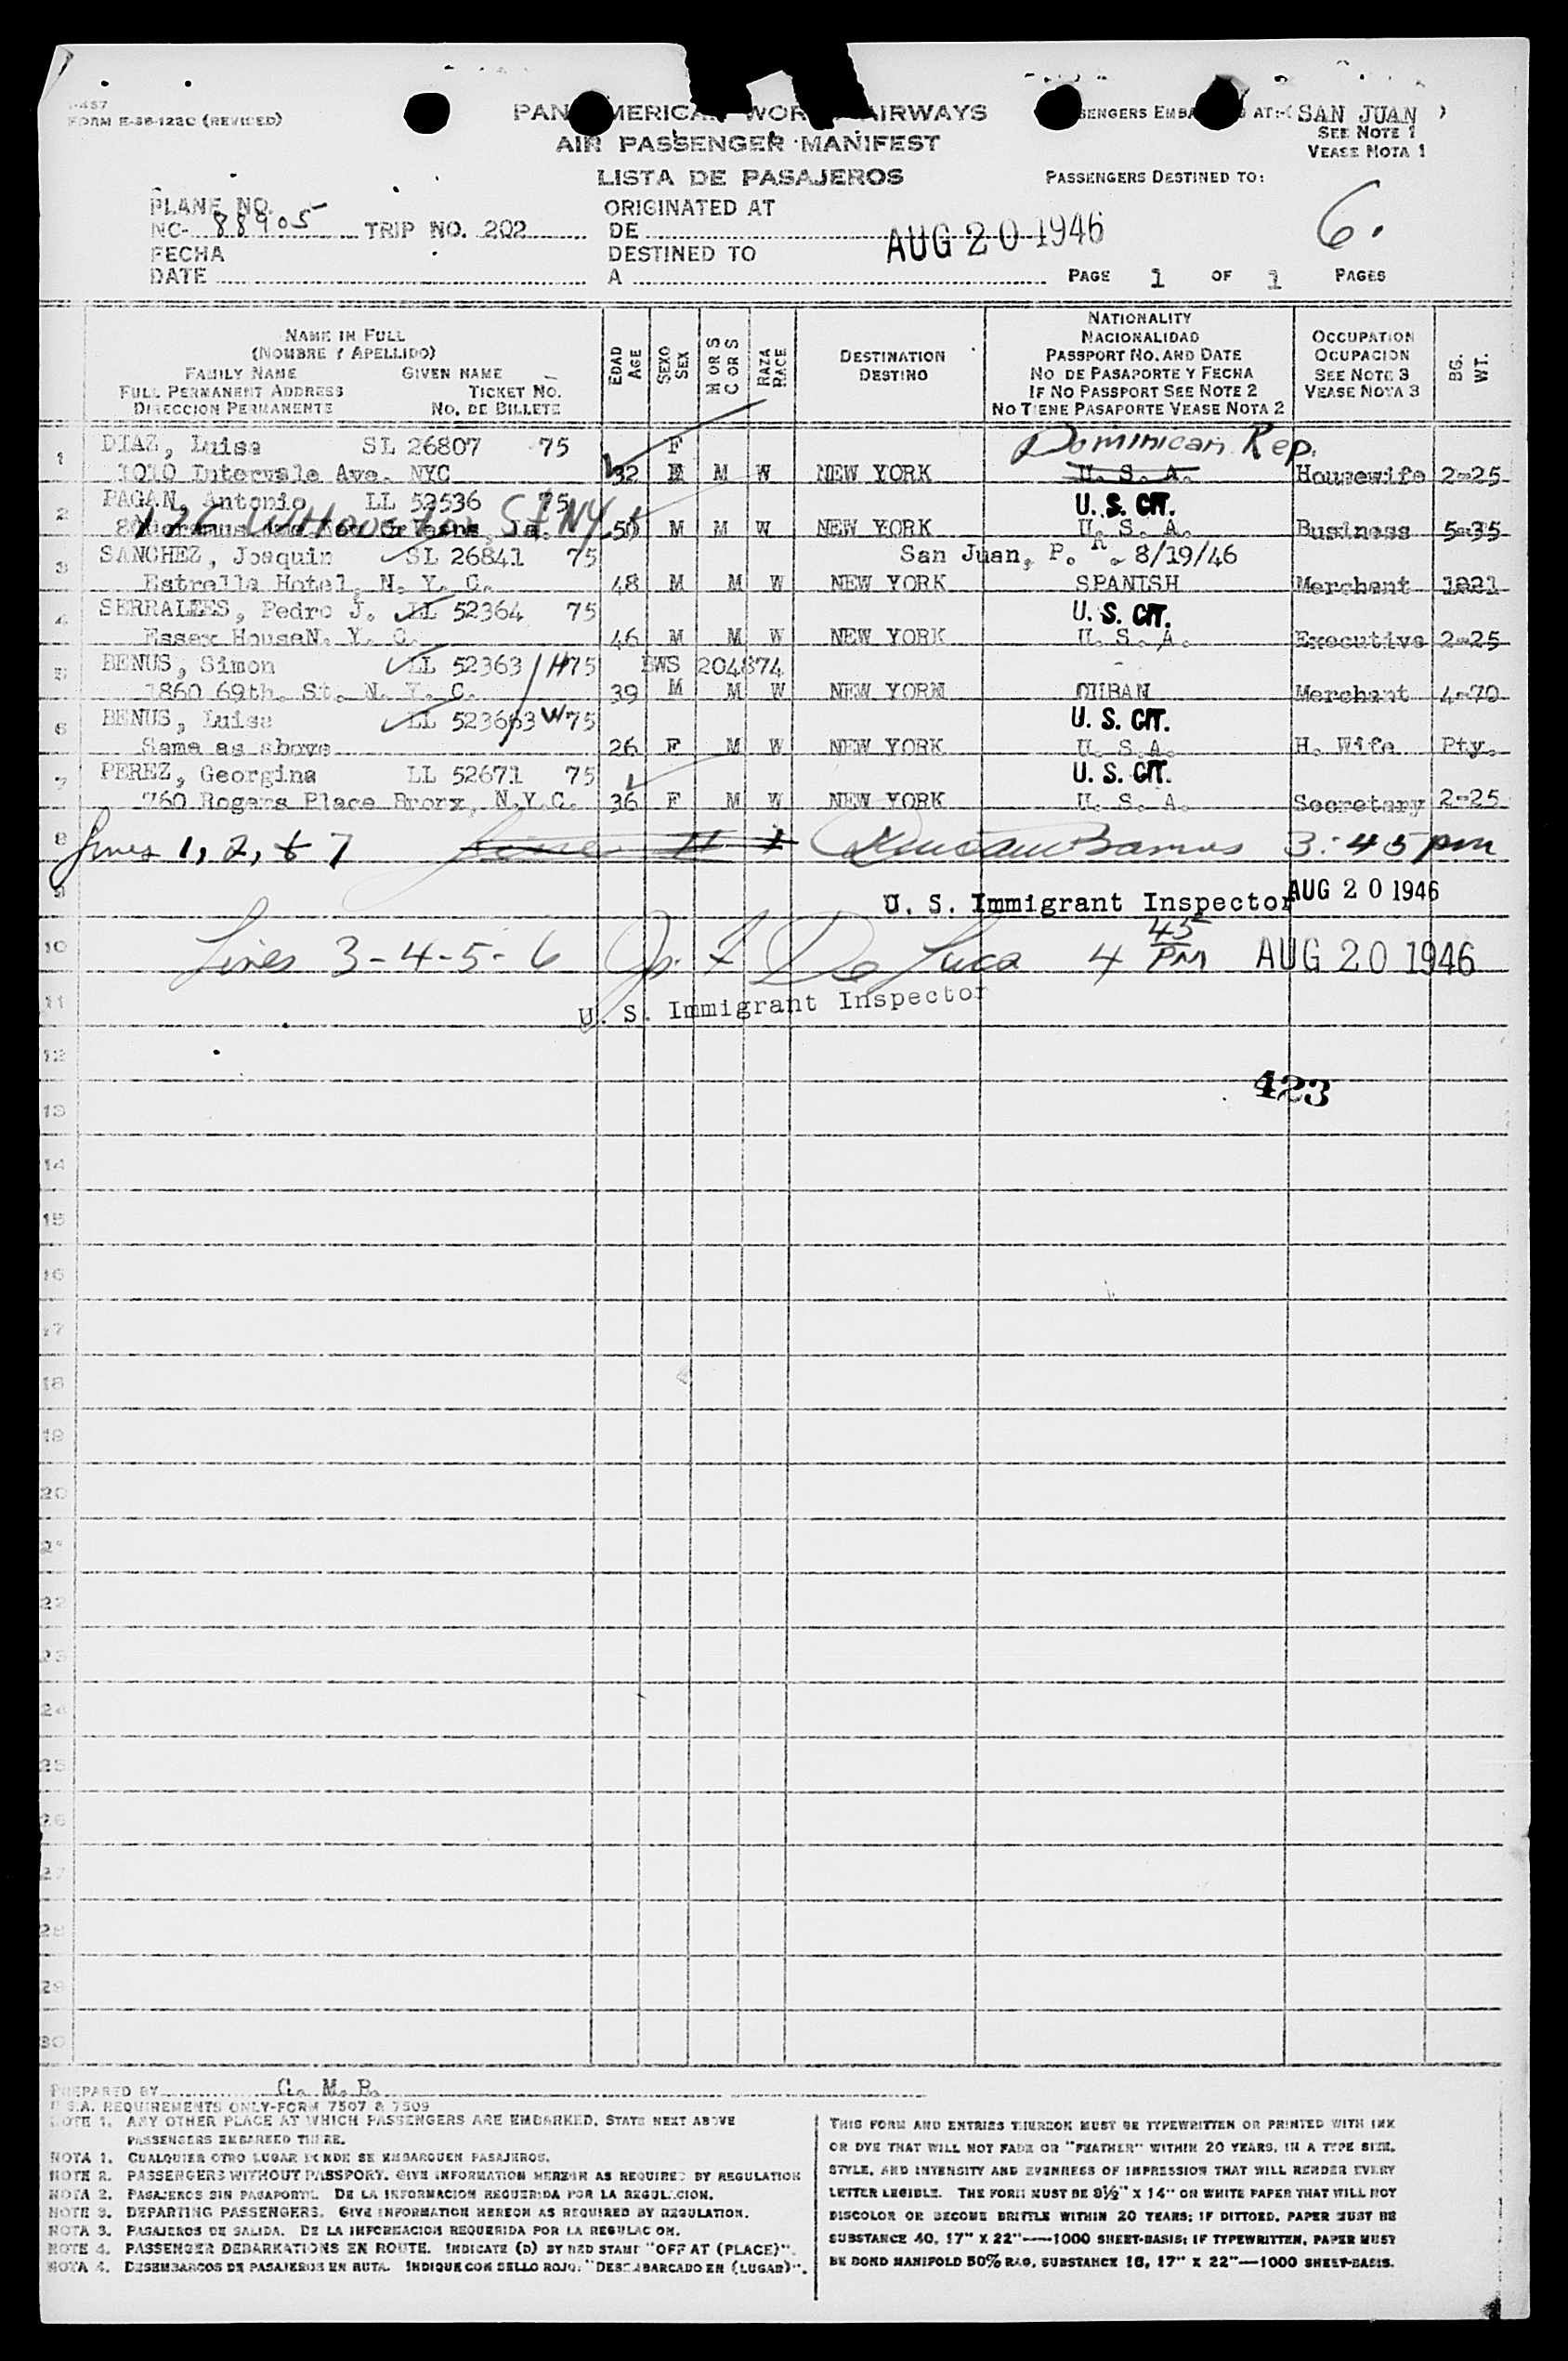 FORM E-36-122C (REVISED)
PAN AMERICAN WORLD AIRWAYS
AIR PASSENGER MANIFEST
LISTA DE PASAJEROS
PASSENGERS EMBARKED AT:-( SAN JUAN )
SEE NOTE 1
VEASE NOTA 1
PASSENGERS DESTINED TO:
PLANE NO.
NC- 88905 TRIP NO. 202
FECHA
DATE
ORIGINATED AT
DE
DESTINED TO
A
AUG 20 1946
6.
PAGE 1 OF 1 PAGES
NAME IN FULL
(NOMBRE Y APELLIDO)
FAMILY NAME GIVEN NAME
FULL PERMANENT ADDRESS TICKET NO.
DIRECCION PERMANENTE NO. DE BILLETE
EDAD AGE
SEXO SEX
M OR S C OR S
RAZA RACE
DESTINATION
DESTINO
NATIONALITY
NACIONALIDAD
PASSPORT NO. AND DATE
NO DE PASAPORTE Y FECHA
IF NO PASSPORT SEE NOTE 2
NO TIENE PASAPORTE VEASE NOTA 2
OCCUPATION
OCUPACION
SEE NOTE 3
VEASE NOTA 3
BG. WT.
1 DIAZ, Luisa SL 26807 75 F Dominican Rep.
1010 Intervale Ave. NYC 32 M M W NEW YORK U. S. A. Housewife 2-25
2 PAGAN, Antonio LL 52536 75 U. S. CIT.
50 M M W NEW YORK U. S. A. Business 5-35
3 SANCHEZ, Joaquin SL 26841 75 San Juan, P. R. 8/19/46
Estrella Hotel, N. Y. C. 48 M M W NEW YORK SPANISH Merchant 1821
4 SERRALLES, Pedro J. LL 52364 75 U. S. CIT.
Essex HouseN. Y. C. 46 M M W NEW YORK U. S. A. Executive 2-25
5 BENUS, Simon LL 52363 H 75 BWS 204874
1860 69th. St. N. Y. C. 39 M M W NEW YORK CUBAN Merchant 4-70
6 BENUS, Luisa LL 523663 W 75 U. S. CIT.
Same as above 26 F M W NEW YORK U. S A. H. Wife Pty.
7 PEREZ, Georgina LL 52671 75 U. S. CIT.
760 Rogers Place Bronx, N.Y.C. 36 F M W NEW YORK U. S. A. Secretary 2-25
8 Lines 1, 2, & 7 3:45 pm
9 U. S. Immigrant Inspector AUG 20 1946
10 Lines 3-4-5-6 Jos. F De Luca 4 45 PM AUG 20 1946
11 U. S. Immigrant Inspector
12
423
13
14
15
16
17
18
19
20
21
22
23
24
25
26
27
28
29
30
PREPARED BY G. M. P.
U.S.A. REQUIREMENTS ONLY-FORM 7507 & 7509
NOTE 1. ANY OTHER PLACE AT WHICH PASSENGERS ARE EMBARKED. STATE NEXT ABOVE
PASSENGERS EMBARKED THERE.
NOTA 1. CUALQUIER OTRO LUGAR DONDE SE EMBARQUEN PASAJEROS.
NOTE 2. PASSENGERS WITHOUT PASSPORT. GIVE INFORMATION HEREON AS REQUIRED BY REGULATION
NOTA 2. PASAJEROS SIN PASAPORTE. DE LA INFORMACION REQUERIDA POR LA REGULACION.
NOTE 3. DEPARTING PASSENGERS. GIVE INFORMATION HEREON AS REQUIRED BY REGULATION.
NOTA 3. PASAJEROS DE SALIDA. DE LA INFORMACION REQUERIDA POR LA REGULACION.
NOTE 4. PASSENGER DEBARKATIONS EN ROUTE. INDICATE (D) BY RED STAMP "OFF AT (PLACE)".
NOTA 4. DESEMBARCOS DE PASAJEROS EN RUTA. INDIQUE CON SELLO ROJO: "DESEMBARCADO EN (LUGAR)".
THIS FORM AND ENTRIES THEREON MUST BE TYPEWRITTEN OR PRINTED WITH INK
OR DYE THAT WILL NOT FADE OR "FEATHER" WITHIN 20 YEARS, IN A TYPE SIZE,
STYLE, AND INTENSITY AND EVENNESS OF IMPRESSION THAT WILL RENDER EVERY
LETTER LEGIBLE. THE FORM MUST BE 8½" X 14" ON WHITE PAPER THAT WILL NOT
DISCOLOR OR BECOME BRITTLE WITHIN 20 YEARS; IF DITTOED, PAPER MUST BE
SUBSTANCE 40, 17" X 22"—1000 SHEET-BASIS; IF TYPEWRITTEN, PAPER MUST
BE BOND MANIFOLD 50% RAG, SUBSTANCE 16, 17" X 22"—1000 SHEET-BASIS.